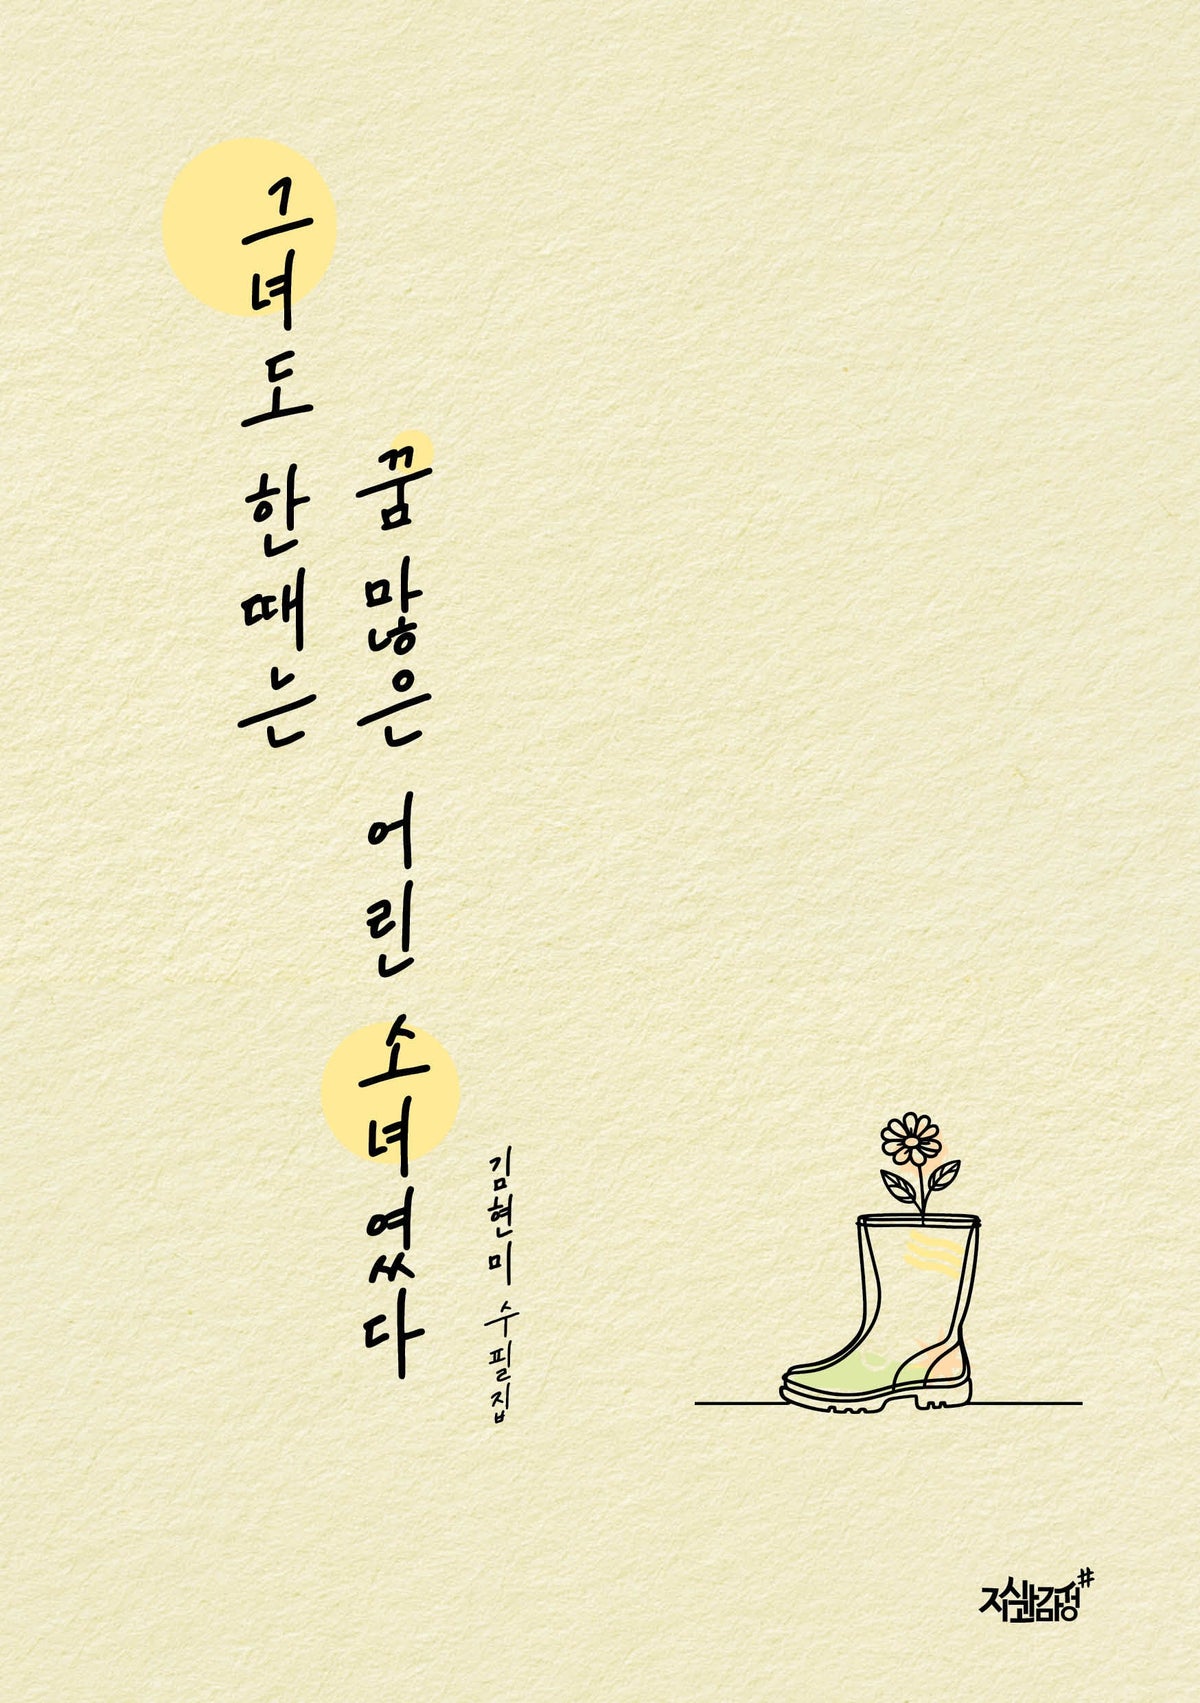 그녀도 한때는
꿈 많은 어린 소녀였다
김현미 수필집
지식과감정#